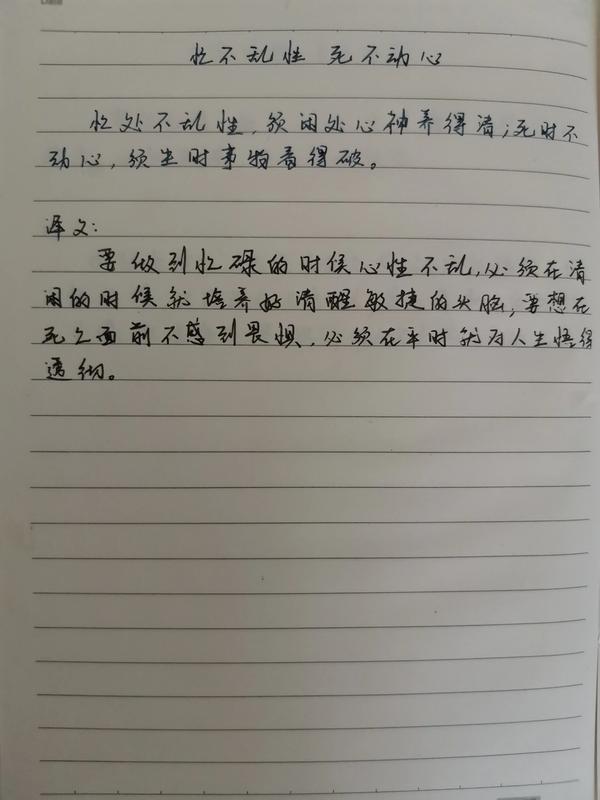 忙不乱性 死不动心
忙处不乱性，须闲处心神养得清；死时不
动心，须生时事物看得破。
译文：
要做到忙碌的时候心性不乱，必须在清
闲的时候就培养好清醒敏捷的头脑，要想在
死亡面前不感到畏惧，必须在平时就对人生悟得
透彻。